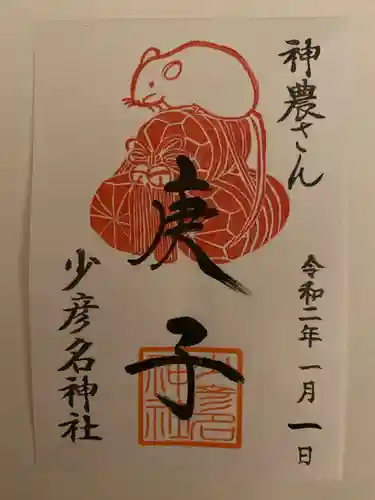 神農さん
令和二年一月一日
庚子
少彦名神社
少彦名神社